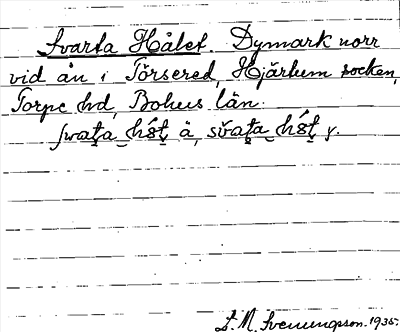 Svarta Hålet. Dymark norr
vid ån i Törsered, Hjärtum socken,
Torpe hd, Bohus län.
å,
Svenungsson. 1935.